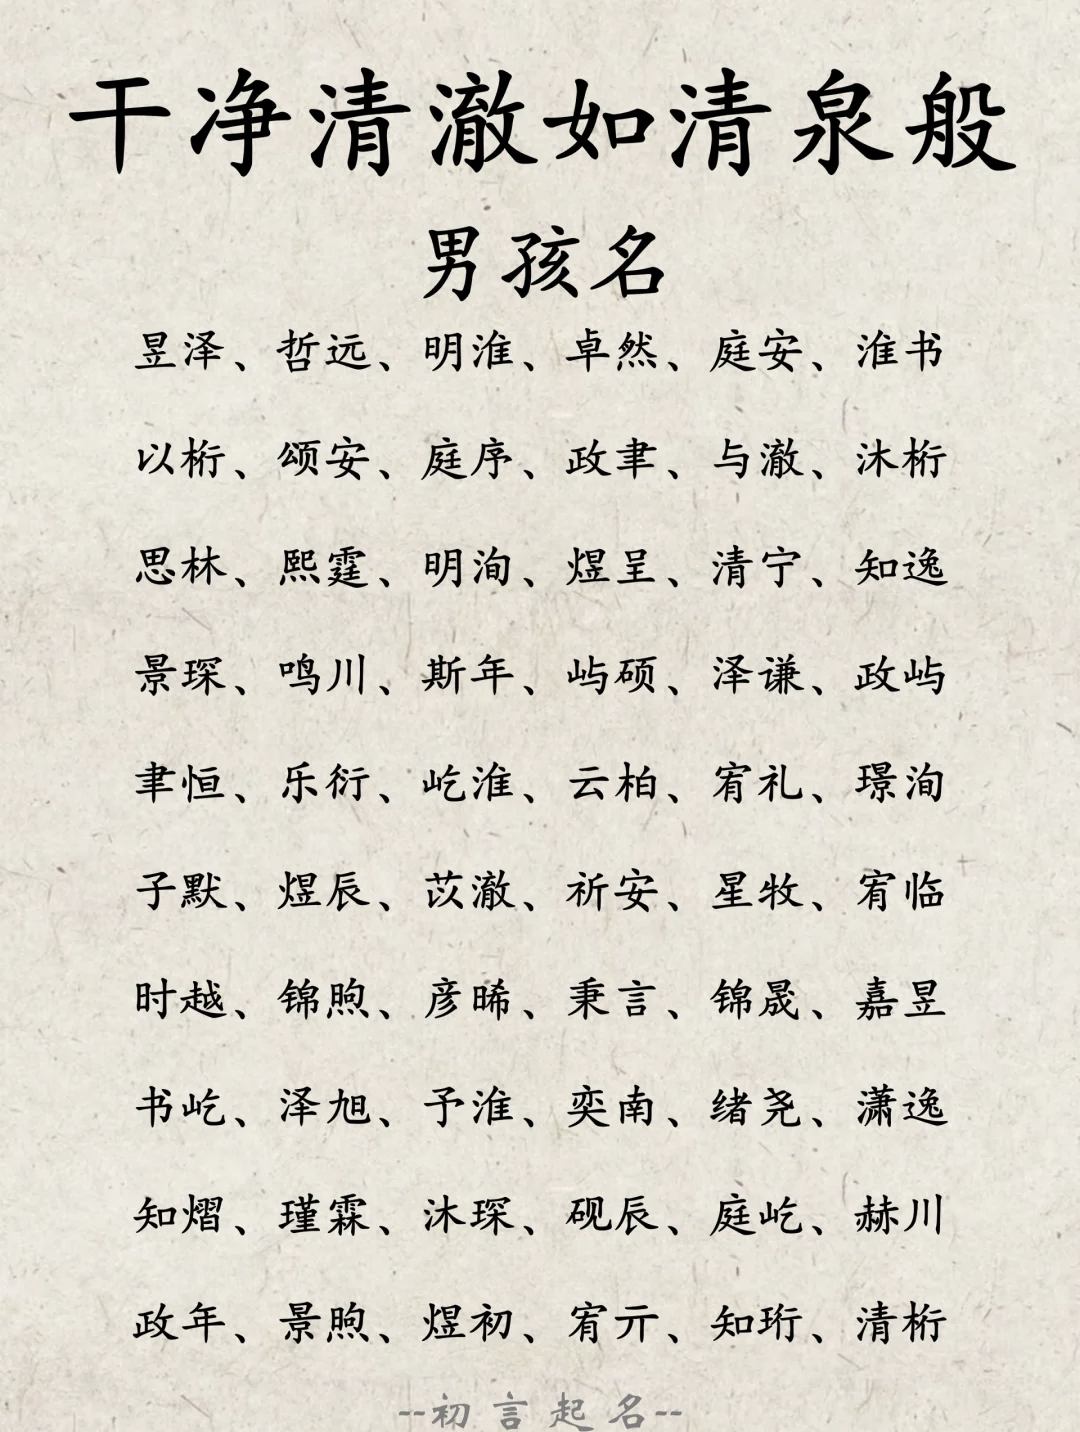 干净清澈如清泉般
男孩名
昱泽、哲远、明淮、卓然、庭安、淮书
以桁、颂安、庭序、政聿、与澈、沐桁
思林、熙霆、明洵、煜呈、清宁、知逸
景琛、鸣川、斯年、屿硕、泽谦、政屿
聿恒、乐衍、屹淮、云柏、宥礼、璟洵
子默、煜辰、苡澈、祈安、星牧、宥临
时越、锦煦、彦晞、秉言、锦晟、嘉昱
书屹、泽旭、予淮、奕南、绪尧、潇逸
知熠、瑾霖、沐琛、砚辰、庭屹、赫川
政年、景煦、煜初、宥亓、知珩、清桁
--初言起名--